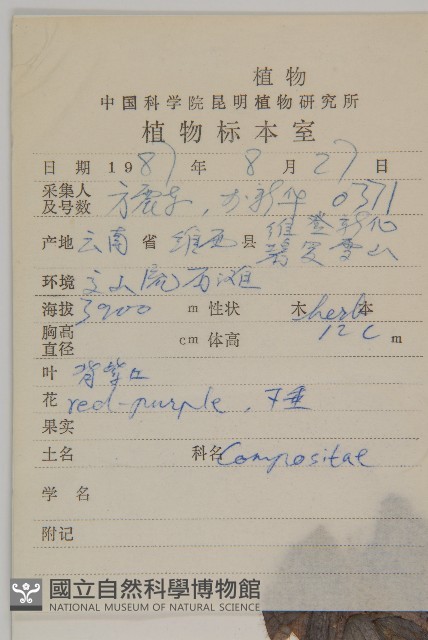 植物
中国科学院昆明植物研究所
植物标本室
日期 1987年 8月 27日
采集人
及号数 0371
产地 云南省 维西县 维登新化
雪山
环境
海拔 3900 m 性状 木 herb 本
胸高
直径 cm 体高 12 c m
叶 背紫红
花 red-purple, 下垂
果实
土名 科名 Compositae
学名
附记
國立自然科學博物館
NATIONAL MUSEUM OF NATURAL SCIENCE